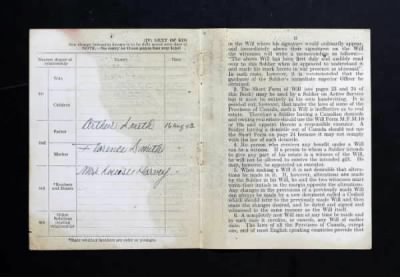 (IV) NEXT OF KIN
Any change hereunder is to be fully stated with date it
NOTE.—No entry in these pages has any legal
Nearest degree of relationship
NAMES
Date
Wife
1st
Children
Father
Arthur Smith
16 Aug 43
2nd
Mother
Florence Smith
Mrs Louise Harvey
3rd
*Brothers and Sisters
4th
Other Relatives (stating relationship)
*State whether brothers are older or younger.
11
in the Will where his signature would ordinarily appear,
and immediately above their signatures on the Will
the witnesses will write a memorandum as follows:—
"The above Will has been first duly and audibly read
over to this Soldier when he appeared to understand it
and made his mark hereto in our presence as aforesaid".
In such cases, however, it is recommended that the
guidance of the Soldier's immediate superior Officer be
obtained.
3. The Short Form of Will (see pages 23 and 24
of this Book) may be used by a Soldier on Active Service
but it must be entirely in his own handwriting. It is
pointed out, however, that under the laws of some of the
Provinces of Canada, such a Will is ineffective as to real
estate. Therefore a Soldier having a Canadian domicile
and owning real estate should use the Will Form M.F.M.10
or 10a and appoint therein a responsible executor. A
Soldier having a domicile out of Canada should not use
the Short Form on page 24 because it may not comply
with the law of such domicile.
4. No person who receives any benefit under a Will
can be a witness. If a person to whom a Soldier intends
to give any part of his estate is a witness of the Will,
he will not be allowed to receive the intended gift. He
may, however, be appointed an executor.
5. When making a Will it is not desirable that alterations
be made in it. If, however, alterations are made
by the Soldier in his Will, he and the two witnesses must
write their initials in the margin opposite the alterations.
Any changes in the provisions of a previously made Will
can always be made by a new document called a Codicil
which should refer to the previously made Will and then
state the changes desired, and be dated and signed and
witnessed in the same manner as the Will itself.
6. A completely new Will can at any time be made and
in such case it revokes, or cancels, any Will of earlier
date. The laws of all the Provinces of Canada, except
one, and of most English speaking countries provide that